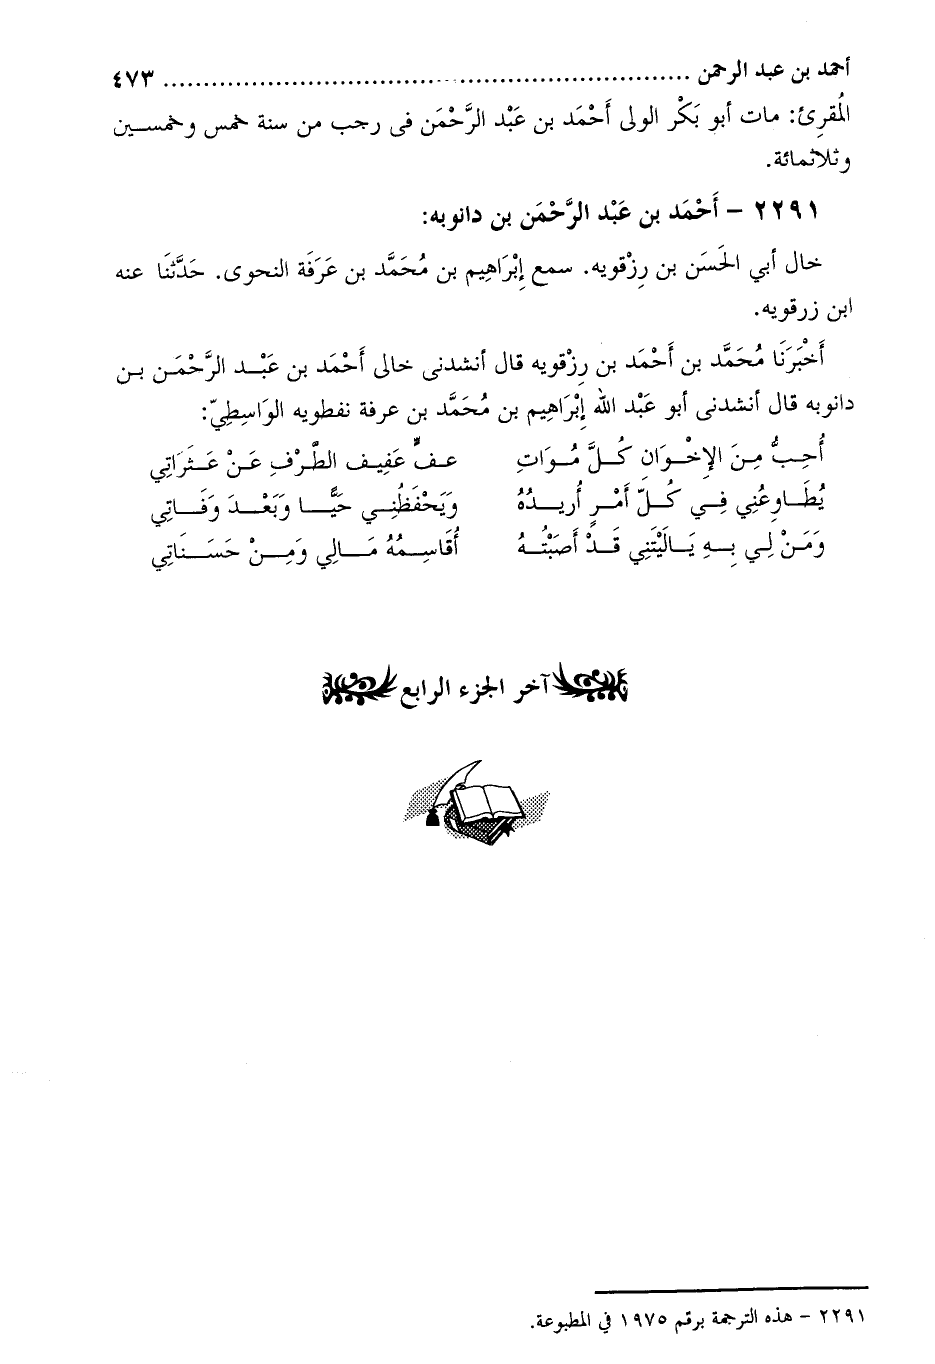 أحمد بن عبد الرحمن ................................................................... ٤٧٣
المُقرِئ: مات أبو بَكْر الولى أَحْمَد بن عَبْد الرَّحْمَن فى رجب من سنة خمس وخمسـين
وثلاثمائة.
٢٢٩١ – أَحْمَد بن عَبْد الرَّحْمَن بن دانوبه:
خال أبي الحَسَن بن رِزْقويه. سمع إِبْرَاهِيم بن مُحَمَّد بن عَرَفَة النحوى. حَدَّثَنَا عنه
ابن زرقويه.
أَخْبَرَنَا مُحَمَّد بن أَحْمَد بن رِزْقويه قال أنشدنى خالى أَحْمَد بن عَبْـد الرَّحْمَـن بـن
دانوبه قال أنشدنى أبو عَبْد الله إِبْرَاهِيم بن مُحَمَّد بن عرفة نفطويه الوَاسِطِيّ:
أُحِـبُّ مِـنَ الإِخْـوَانِ كُـلَّ مُـوَاتِ عـفٌّ عَفِيـف الطَّـرْفِ عَـنْ عَـثَرَاتِي
يُطَـاوِعُنِي فِـي كُـلّ أَمْـرٍ أُريـدُهُ وَيَحْفَظُنِـي حَيًّـا وَبَعْـدَ وَفَـاتِي
وَمَـنْ لِـي بِـهِ يَـالَيْتَنِي قَـدْ أَصَبْتُـهُ أُقَاسِـمُهُ مَـالِي وَمِـنْ حَسَـنَاتِي
آخر الجزء الرابع
٢٢٩١ – هذه الترجمة برقم ١٩٧٥ في المطبوعة.